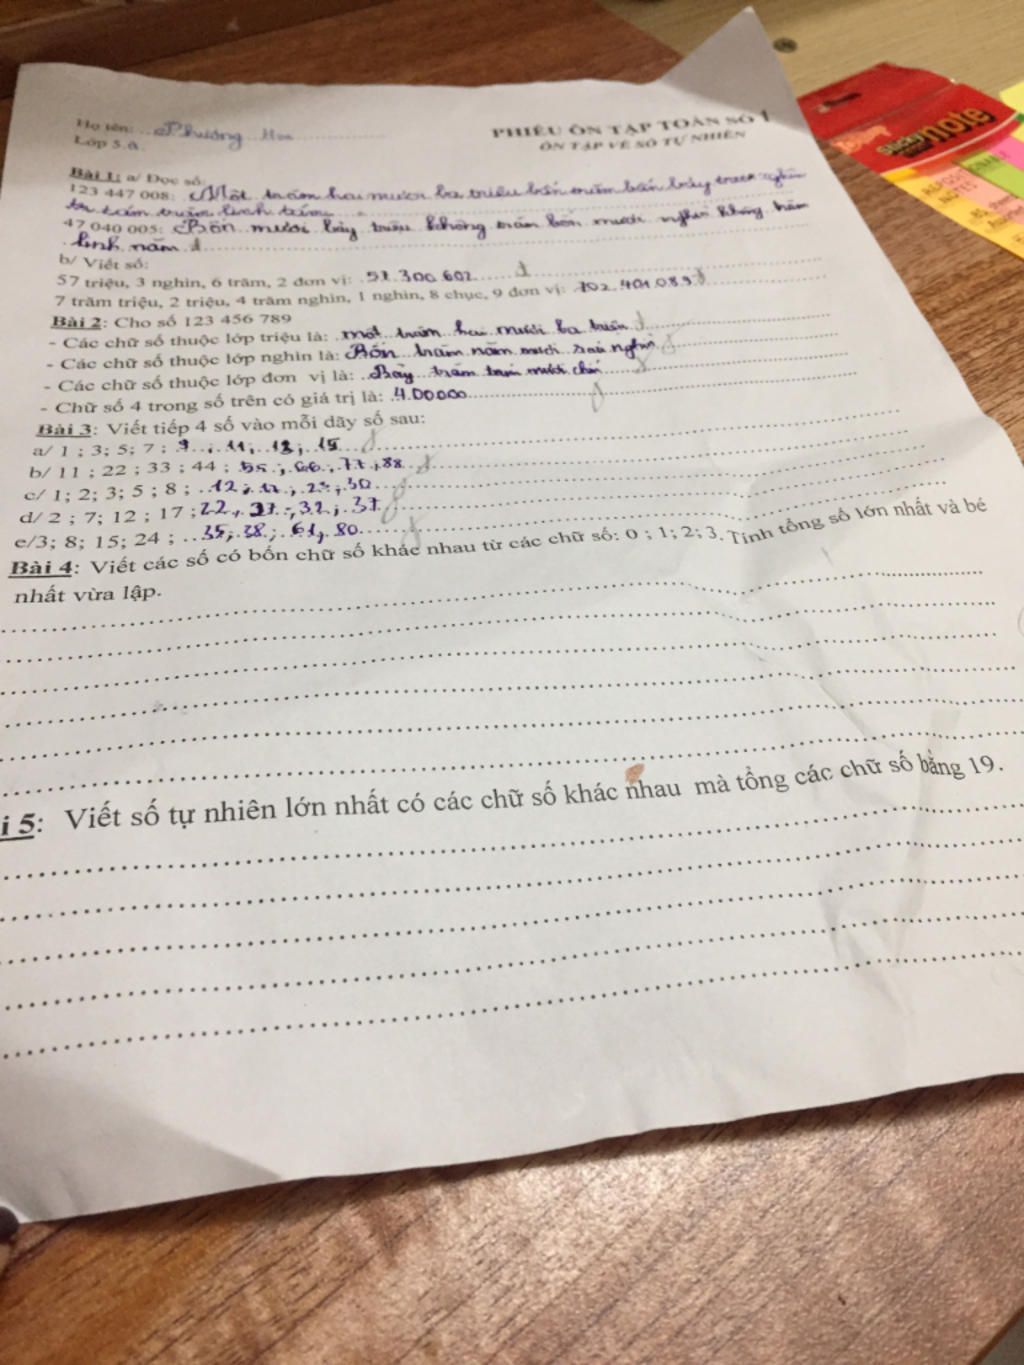 Họ tên: Phương Hoa
Lớp 5.a
PHIẾU ÔN TẬP TOÁN SỐ 1
ÔN TẬP VỀ SỐ TỰ NHIÊN
Bài 1: a/ Đọc số:
123 447 008: Một trăm hai mươi ba triệu bốn trăm bốn bảy nghìn
trăm linh tám
47 040 005: Bốn mươi bảy triệu không trăm bốn mươi nghìn không trăm
linh năm
b/ Viết số:
57 triệu, 3 nghìn, 6 trăm, 2 đơn vị: 300 602
7 trăm triệu, 2 triệu, 4 trăm nghìn, 1 nghìn, 8 chục, 9 đơn vị: 702 401 089
Bài 2: Cho số 123 456 789
- Các chữ số thuộc lớp triệu là: một trăm hai mươi ba triệu
- Các chữ số thuộc lớp nghìn là: Bốn trăm năm mươi sáu nghìn
- Các chữ số thuộc lớp đơn vị là: Bảy trăm tám mươi chín
- Chữ số 4 trong số trên có giá trị là: 400000
Bài 3: Viết tiếp 4 số vào mỗi dãy số sau:
a/ 1 ; 3; 5; 7 ; 9 ; 11; 13; 15
b/ 11 ; 22 ; 33 ; 44 ; 55 ; 66 ; 77 ; 88
c/ 1; 2; 3; 5 ; 8 ; 12 ; 30
d/ 2 ; 7; 12 ; 17 ; 22 ; 32 ; 37
e/3; 8; 15; 24 ; 35; 61, 80
Bài 4: Viết các số có bốn chữ số khác nhau từ các chữ số: 0 ; 1; 2; 3. Tính tổng số lớn nhất và bé
nhất vừa lập.
i 5: Viết số tự nhiên lớn nhất có các chữ số khác nhau mà tổng các chữ số bằng 19.
sticky note